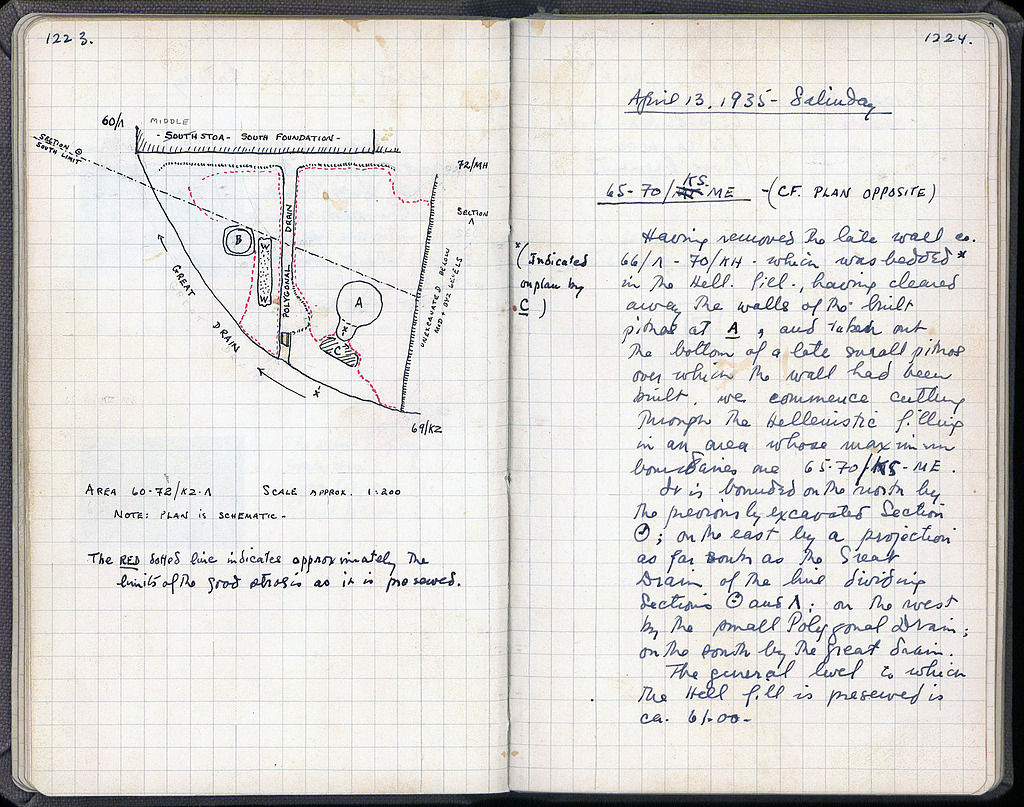 1223.
60/Λ
MIDDLE
- SOUTH STOA - SOUTH FOUNDATION -
SECTION Θ
SOUTH LIMIT
72/MH
SECTION
Λ
B
DRAIN
POLYGONAL
A
C
GREAT
DRAIN
UNEXCAVATED BELOW
69/KZ
AREA 60-72/KZ-Λ SCALE APPROX. 1:200
NOTE: PLAN IS SCHEMATIC -
The RED dotted line indicates approximately the
limits of the good strosis as it is preserved.
1224.
April 13, 1935 - Saturday
65-70/KS-ME - (CF. PLAN OPPOSITE)
*(Indicated
on plan by
C)
Having removed the late wall ca.
66/Λ - 70/KH - which was bedded *
in the Hell. fill., having cleared
away the walls of the built
pithos at A, and taken out
the bottom of a late small pithos
over which the wall had been
built, we commence cutting
through the Hellenistic filling
in an area whose maximum
boundaries are 65-70/KS-ME.
It is bounded on the north by
the previously excavated Section
Θ; on the east by a projection
as far south as the Great
Drain of the line dividing
Sections Θ and Λ; on the west
by the small Polygonal Drain;
on the south by the Great Drain.
The general level to which
the Hell fill is preserved is
ca. 61.00-